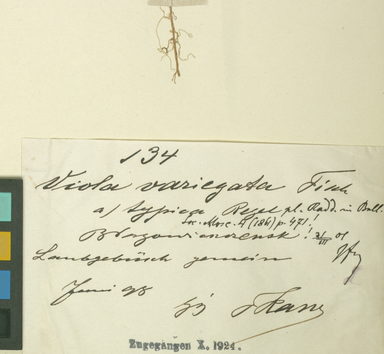 134
Viola variegata Fisch
a) typica Regel pl. Radd. in Bull.
Soc. Mosc. 4 (1861) p. 471!
Blagowieschensk!
Laubgebüsch gemein
Juni 98
Zugegangen X. 1924.